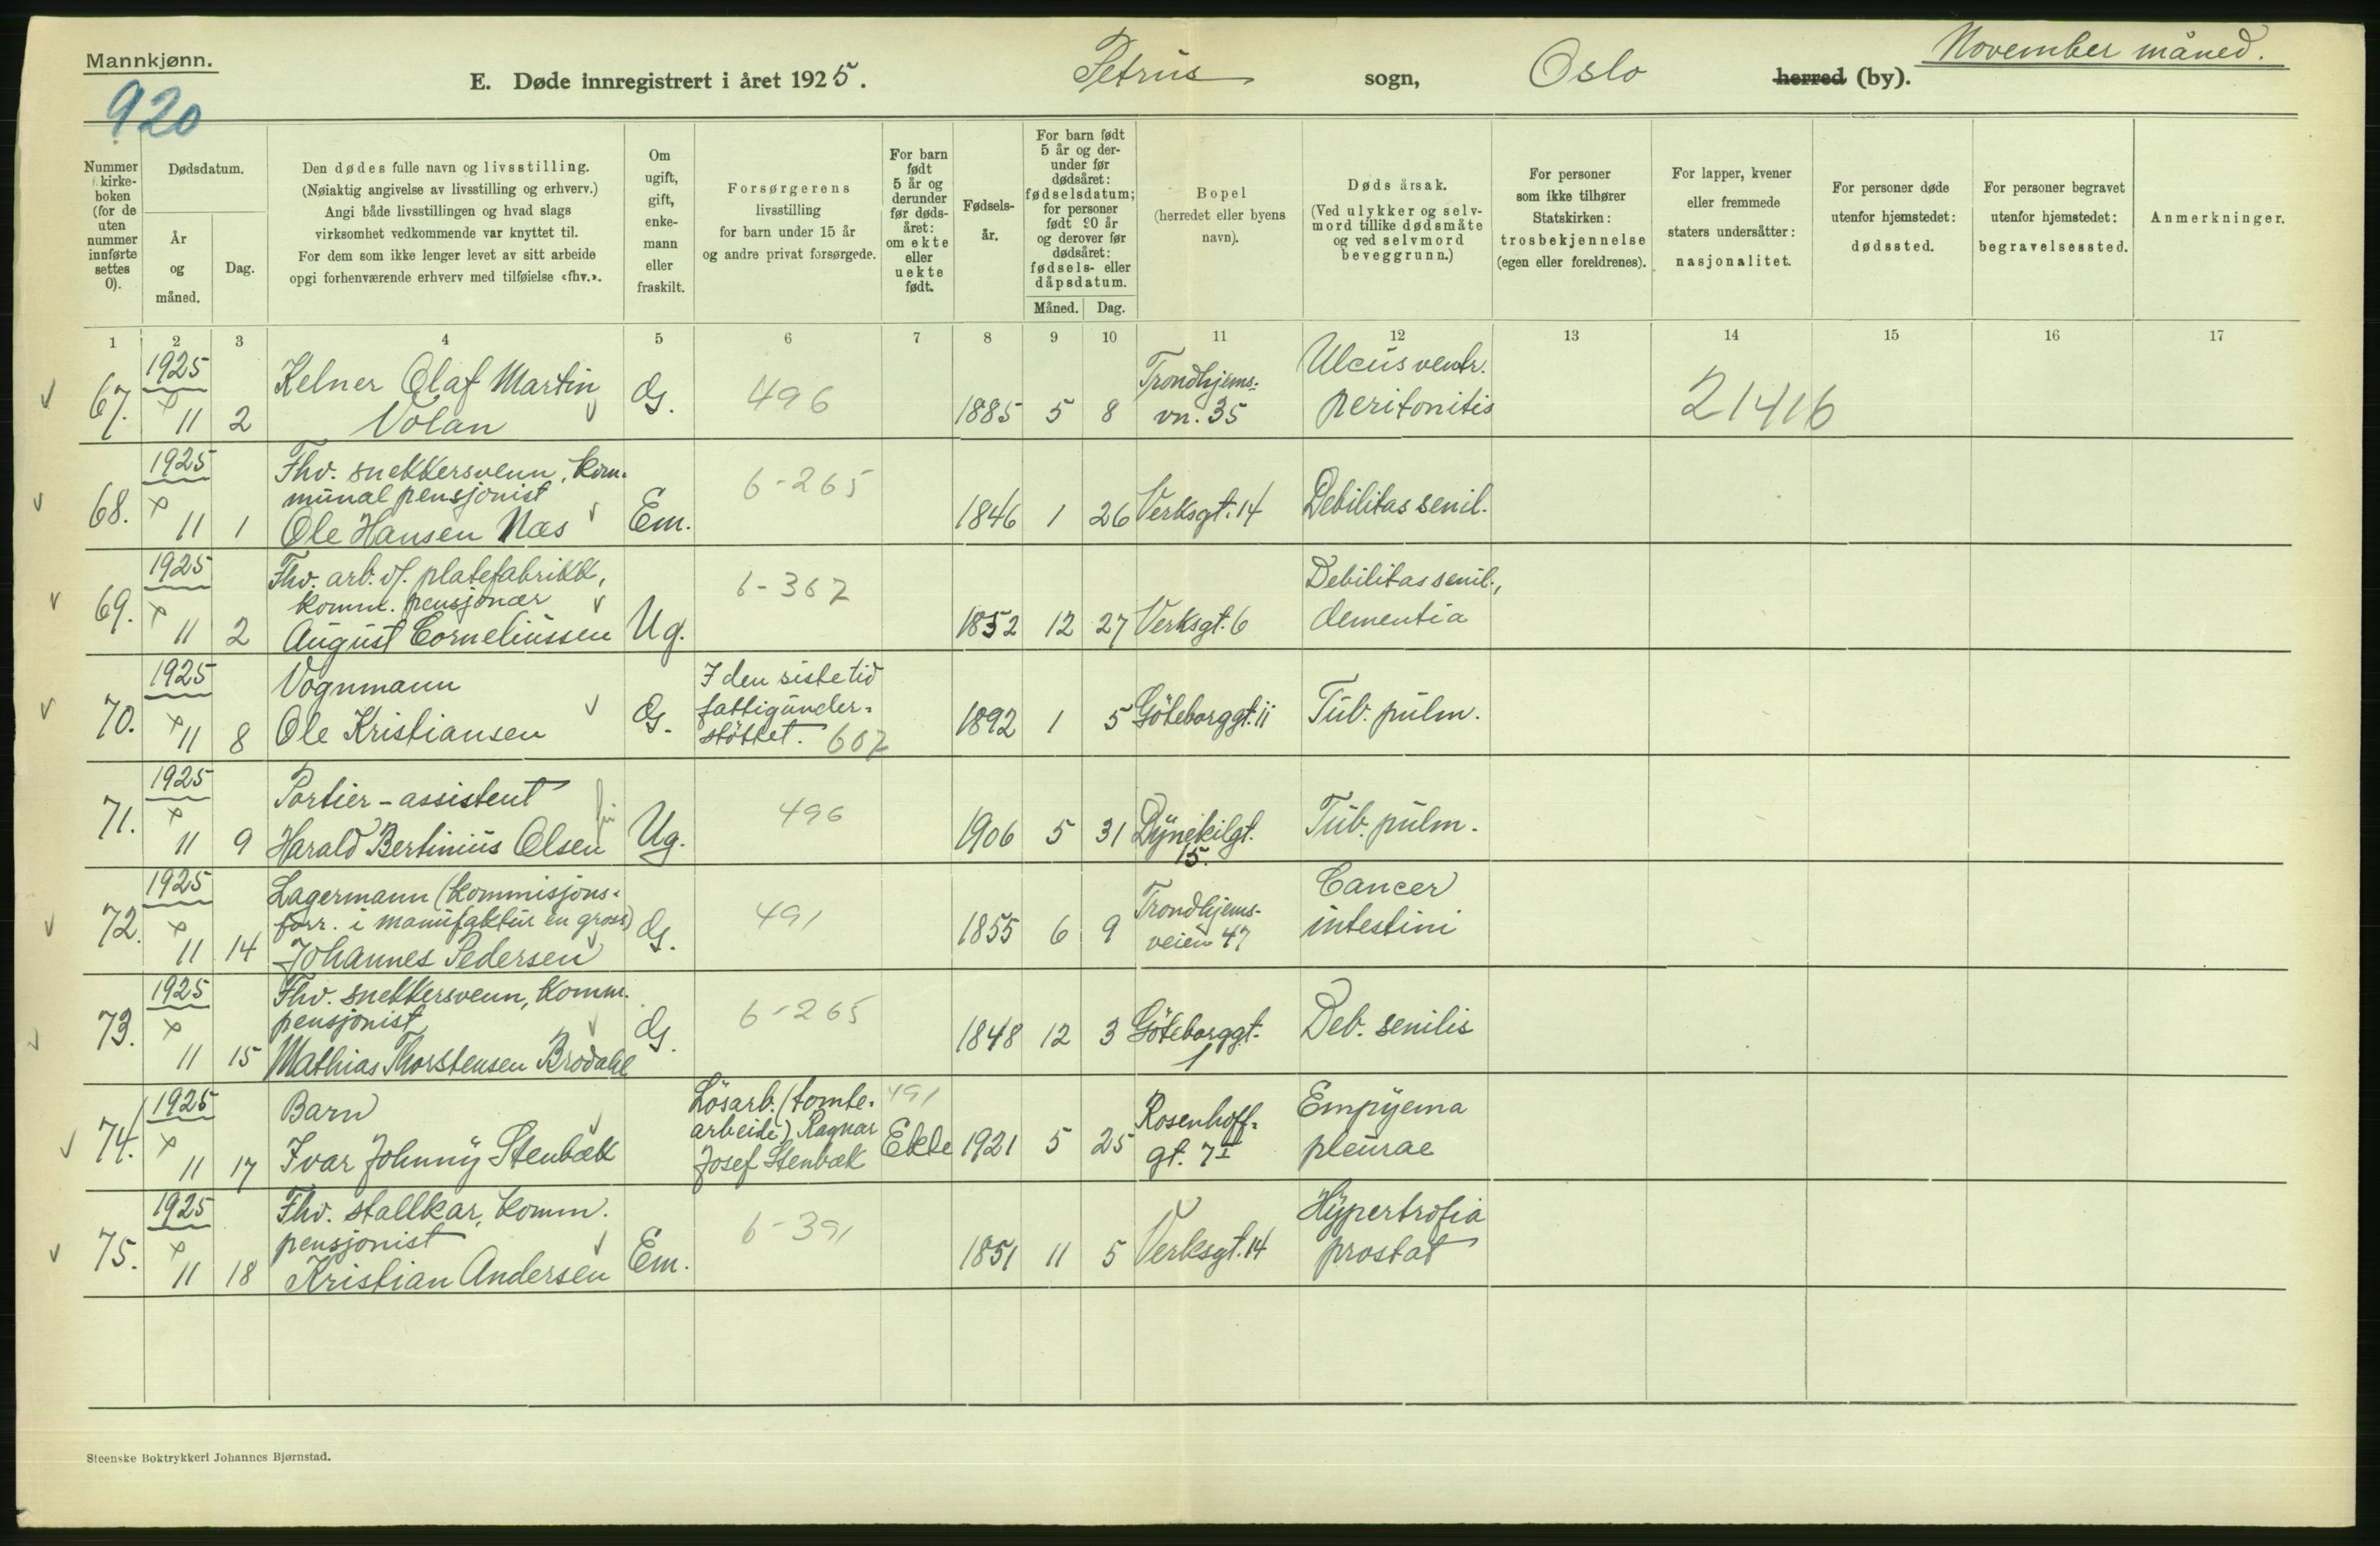 Mannkjønn.
920
E. Døde innregistrert i året 1925. Petrus sogn, Oslo herred (by). November måned.
Nummer kirke- boken (for de uten nummer innførte settes 0).
Dødsdatum.
År og måned.
Dag.
Den dødes fulle navn og livsstilling.
(Nøiaktig angivelse av livsstilling og erhverv.)
Angi både livsstillingen og hvad slags
virksomhet vedkommende var knyttet til.
For dem som ikke lenger levet av sitt arbeide
opgi forhenværende erhverv med tilføielse «fhv.».
Om ugift, gift, enke- mann eller fraskilt.
Forsørgerens
livsstilling
for barn under 15 år
og andre privat forsørgede.
For barn født 5 år og derunder før døds- året: om ekte eller uekte født.
Fødsels- år.
For barn født 5 år og der- under før dødsåret: fødselsdatum; for personer født 90 år og derover før dødsåret: fødsels- eller dåpsdatum.
Måned. Dag.
Bopel
(herredet eller byens
navn).
Døds årsak.
(Ved ulykker og selv-
mord tillike dødsmåte
og ved selvmord
beveggrunn.)
For personer
som ikke tilhører
Statskirken:
trosbekjennelse
(egen eller foreldrenes).
For lapper, kvener
eller fremmede
staters undersåtter:
nasjonalitet.
For personer døde
utenfor hjemstedet:
dødssted.
For personer begravet
utenfor hjemstedet:
begravelsessted.
Anmerkninger.
1 2 3 4 5 6 7 8 9 10 11 12 13 14 15 16 17
67. 1925 11 2 Kelner Olaf Martin
Volan
G. 496 1885 5 8 Trondhjems-
vn. 35
Ulcus ventr.
peritonitis
21416
68. 1925 11 1 Fhv. snekkersvenn, kom-
munal pensjonist
Ole Hansen Næs
Em. 6-265 1846 1 26 Verksgt. 14 Debilitas senil.
69. 1925 11 2 Fhv. arb. v/. platefabrikk,
komm. pensjonær
August Corneliussen
Ug. 6-367 1852 12 27 Verksgt. 6 Debilitas senil.,
dementia
70. 1925 11 8 Vognmann
Ole Kristiansen
G. I den siste tid
fattigunder-
støttet. 607
1892 1 5 Göteborggt. 11 Tub. pulm.
71. 1925 11 9 Portier-assistent
Harald Bertinius Olsen
Ug. 496 1906 5 31 Dynekilgt.
15.
Tub. pulm.
72. 1925 11 14 Lagermann (kommisjons-
forr. i manufaktur en gross)
Johannes Pedersen
G. 491 1855 6 9 Trondhjems-
veien 47
Cancer
intestini
73. 1925 11 15 Fhv. snekkersvenn, komm.
pensjonist
Mathias Thorstensen Brodahl
G. 6-265 1848 12 3 Göteborggt.
1
Deb. senilis
74. 1925 11 17 Barn
Ivar Johnny Stenbæk
Løsarb. (tomte-
arbeide) Ragnar
Josef Stenbæk
491
Ekte 1921 5 25 Rosenhoff-
gt. 7 I
Empyema
pleurae
75. 1925 11 18 Fhv. stallkar, komm.
pensjonist
Kristian Andersen
Em. 6-391 1851 11 5 Verksgt. 14 Hypertrofia
prostat
Steenske Boktrykkeri Johannes Bjørnstad.